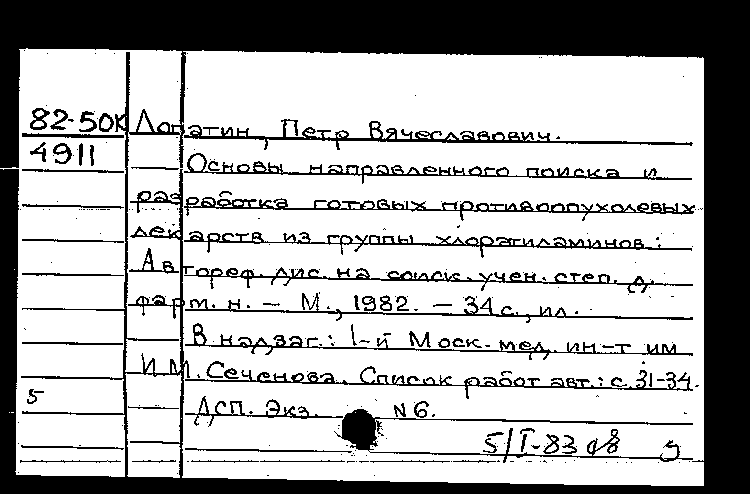 82-50К Лопатин, Петр Вячеславович.
4911 Основы направленного поиска и
разработка готовых противоопухолевых
лекарств из группы хлорэтиламинов:
Автореф. дис. на соиск. учен. степ. д.
фарм. н. – М., 1982. – 34 с., ил.
В надзаг.: 1-й Моск. мед. ин-т им
И.М. Сеченова. Список работ авт.: с. 31-34.
5 ДСП. Экз. N 6.
5/I-83